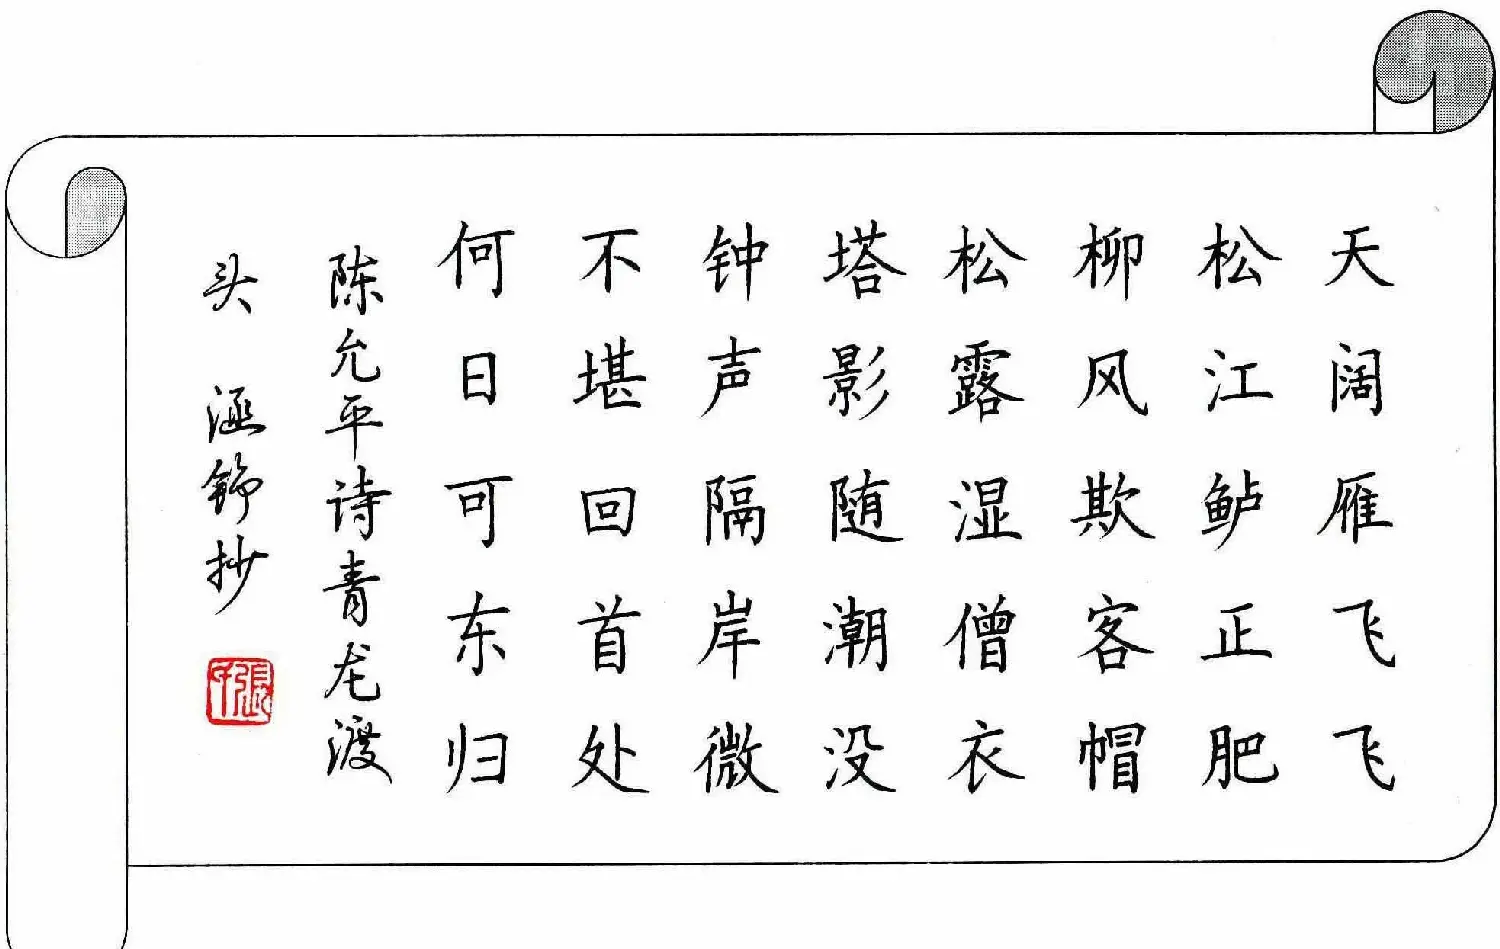 天阔雁飞飞
松江鲈正肥
柳风欺客帽
松露湿僧衣
塔影随潮没
钟声隔岸微
不堪回首处
何日可东归
陈允平诗青龙渡
头 涵铮抄